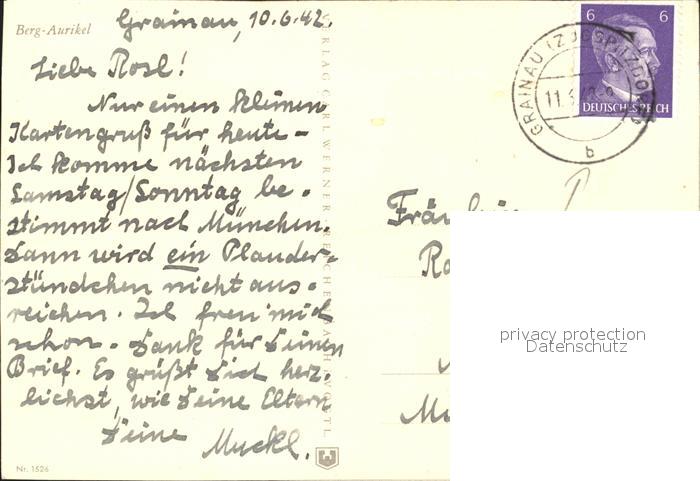 Berg-Aurikel
Grainau, 10.6.42.
Liebe Rosl!
Nur einen kleinen
Kartengruß für heute –
Ich komme nächsten
Samstag/Sonntag be-
stimmt nach München.
Dann wird ein Plauder-
stündchen nicht aus-
reichen. Ich freu' mich
schon. Dank für Deinen
Brief. Es grüßt Dich herz-
lichst, wie Deine Eltern
Deine
Muckl.
Nr. 1526
VERLAG CARL WERNER, REICHENBACH I. VOGTL.
GRAINAU (ZUGSPITZDORF)
11.6.42
b
6 6
DEUTSCHES REICH
Fräulein
privacy protection
Datenschutz